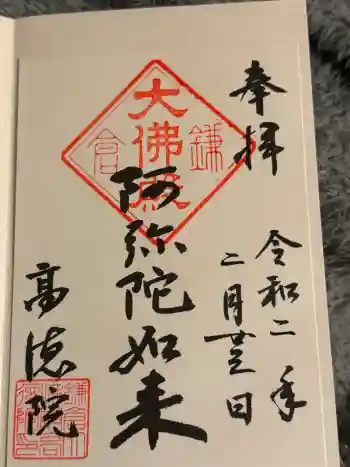 奉拝
令和二年
二月廿三日
大佛殿
鎌倉
阿弥陀如来
高徳院